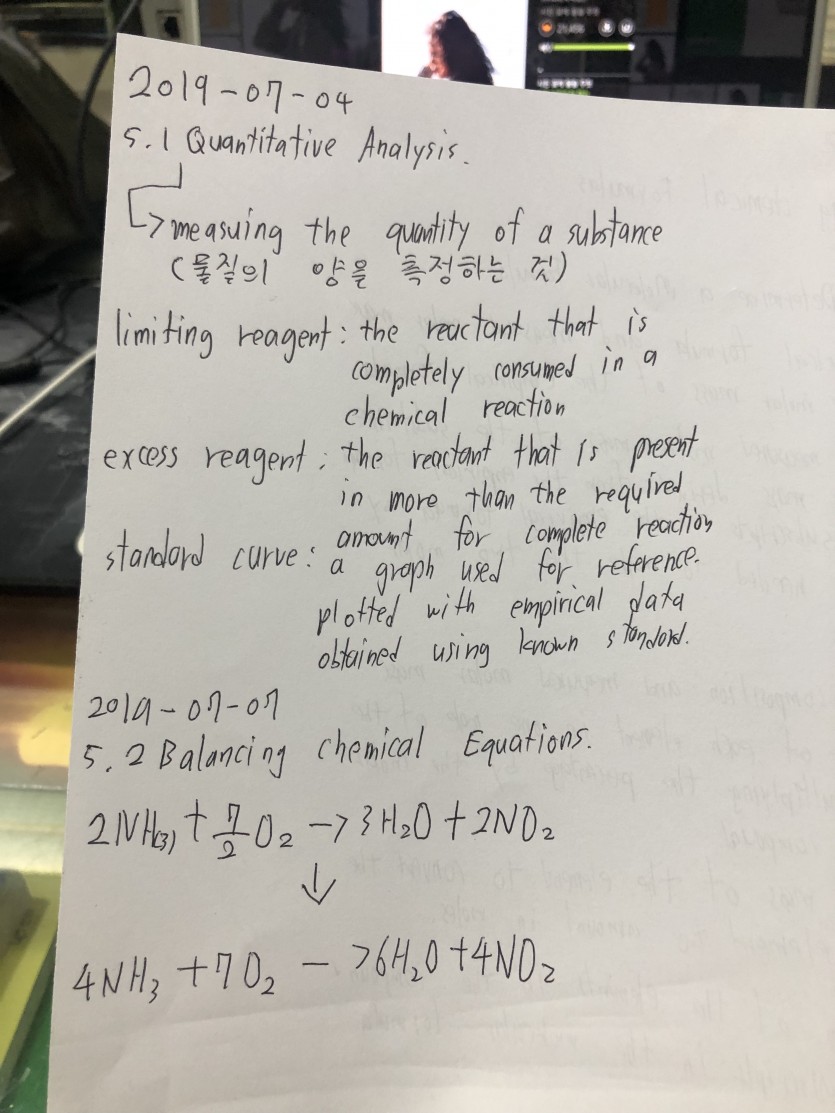 2019-07-04
5.1 Quantitative Analysis.
measuing the quantity of a substance
(물질의 양을 측정하는 것)
limiting reagent: the reactant that is
completely consumed in a
chemical reaction
excess reagent: the reactant that is present
in more than the required
amount for complete reaction
standard curve: a graph used for reference.
plotted with empirical data
obtained using known standard.
2019-07-07
5.2 Balancing chemical Equations.
2NH(3) + 7/2 O2 -> 3H2O + 2NO2
↓
4NH3 + 7O2 -> 6H2O + 4NO2